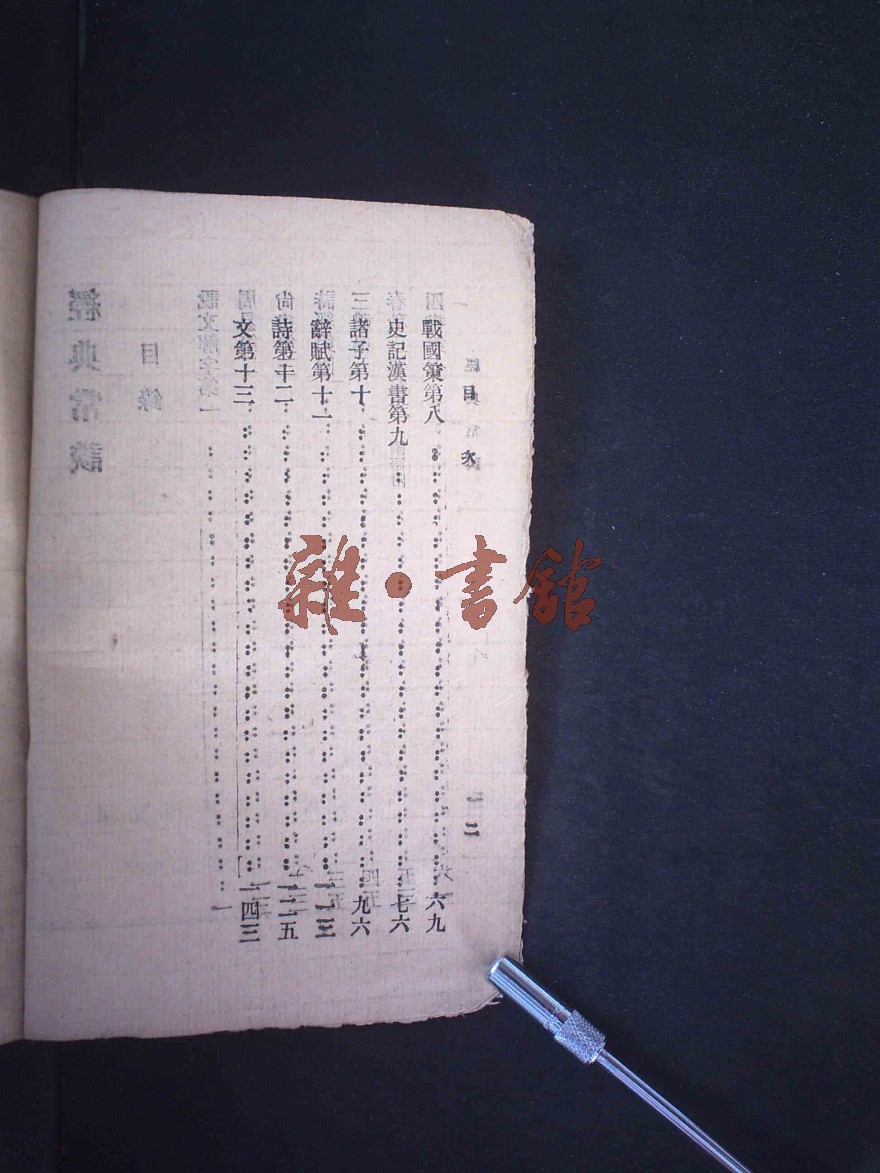 目次
二
戰國策第八……六九
史記漢書第九……七六
諸子第十……九六
辭賦第十一……一一三
詩第十二……一二五
文第十三……一四三
經典常談
目錄
說文解字第一……一
雜·書館